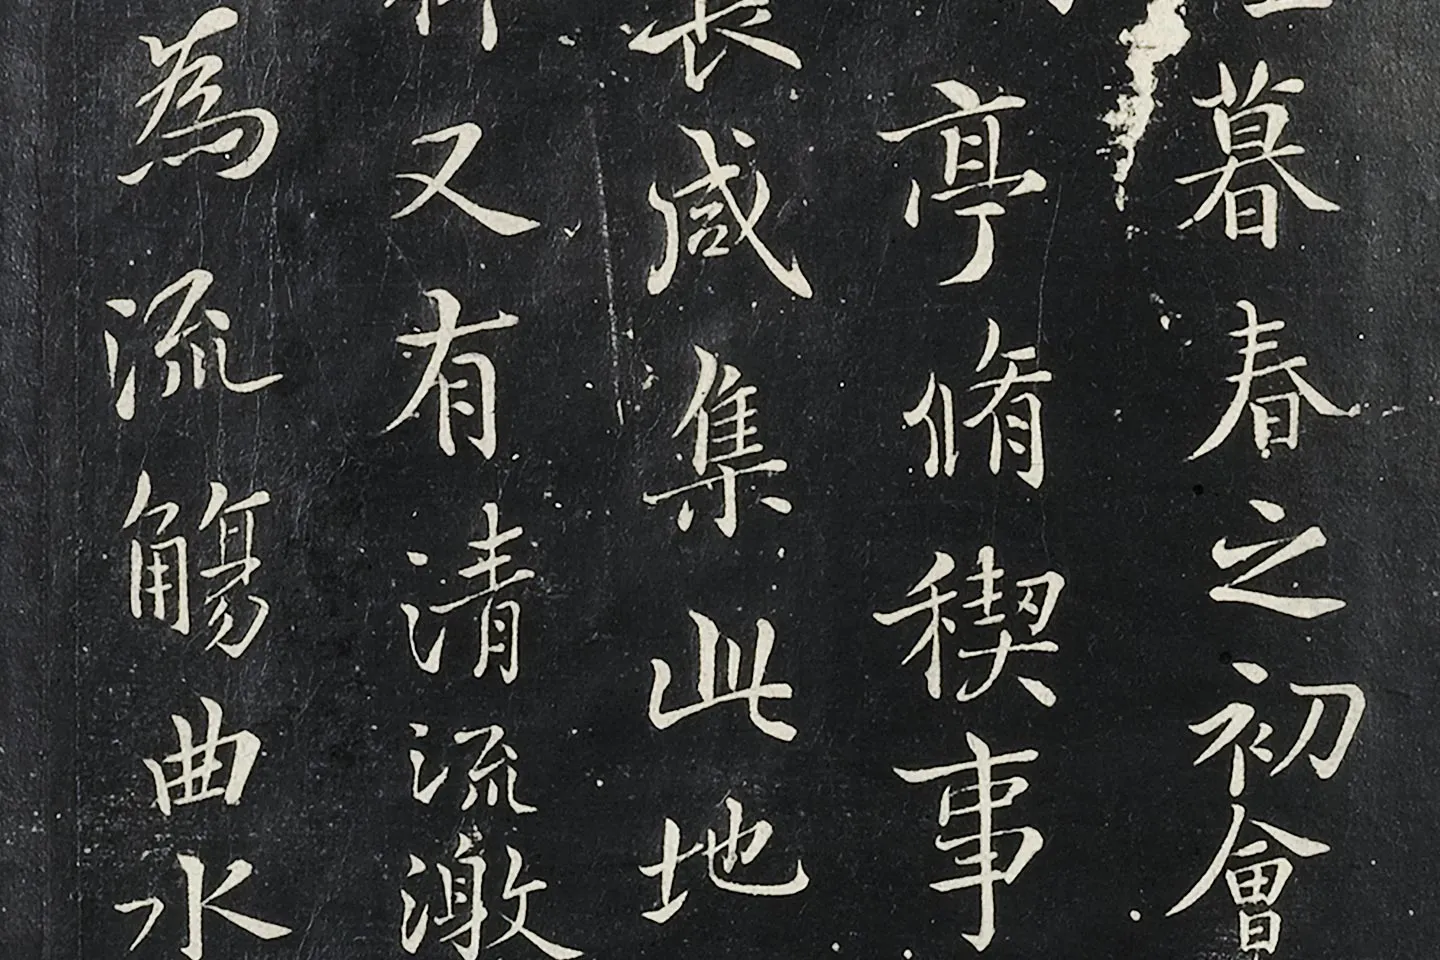 暮春之初會
亭脩稧事
長咸集此地
又有清流激
為流觴曲水